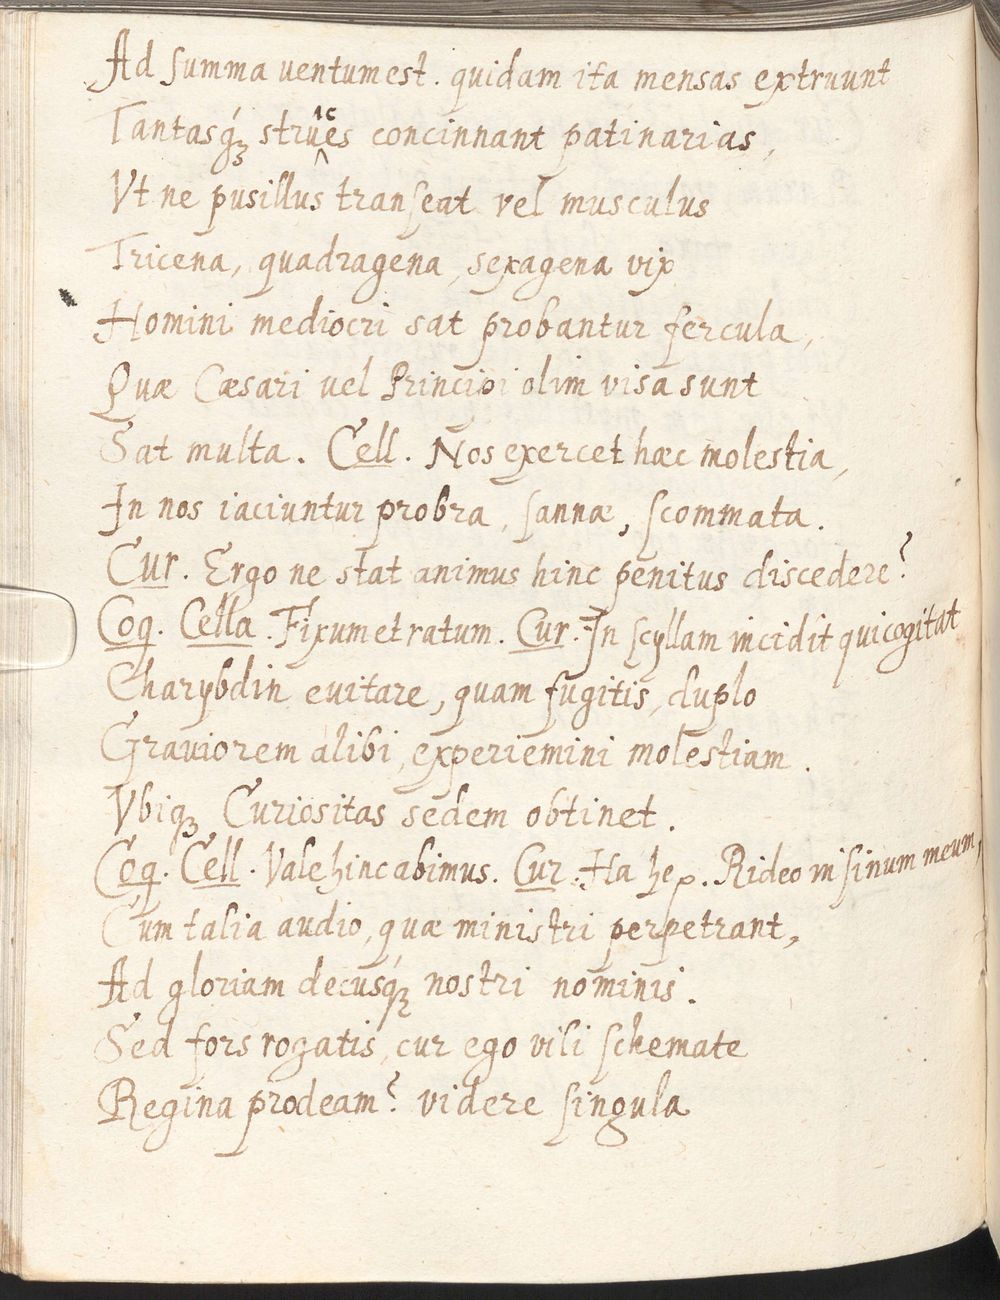 Ad summa ventum est. quidam ita mensas extruunt
Tantasq́ꝫ strûces concinnant patinarias,
Vt ne pusillus transeat vel musculus
Tricena, quadragena, sexagena vix
Homini mediocri sat probantur fercula,
Quæ Cæsari uel Principi olim visa sunt
Sat multa. Cell. Nos exercet hæc molestia,
In nos iaciuntur probra, sannæ, scommata.
Cur. Ergo ne stat animus hinc penitus discedere?
Coq. Cella. Fixum et ratum. Cur. In scyllam incidit qui cogitat
Charybdin euitare, quam fugitis, duplo
Grauiorem alibi, experiemini molestiam.
Vbiqꝫ Curiositas sedem obtinet.
Coq. Cell. Vale hinc abimus. Cur. Ha he. Rideo in sinum meum,
Cum talia audio, quæ ministri perpetrant,
Ad gloriam decusq́ꝫ nostri nominis.
Sed fors rogatis, cur ego vili schemate
Regina prodeam? videre singula